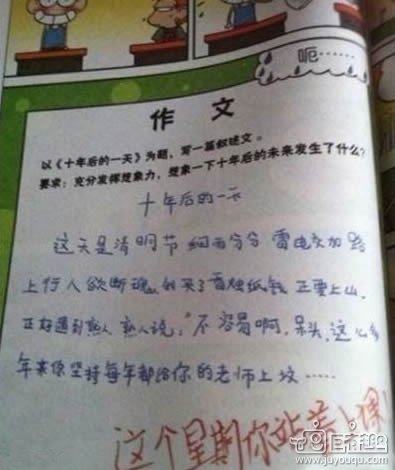 呃……
作 文
以《十年后的一天》为题，写一篇叙述文。
要求：充分发挥想象力，想象一下十年后的未来发生了什么？
十年后的一天
这天是清明节 细雨分分 雷电交加 路
上行人欲断魂，我买了香烛纸钱 正要上山，
正好遇到熟人 熟人说：“不容易啊，呆头，这么多
年来你坚持每年都给你的老师上坟……
这个星期你站着上课！
巨有趣
www.juyouqu.com